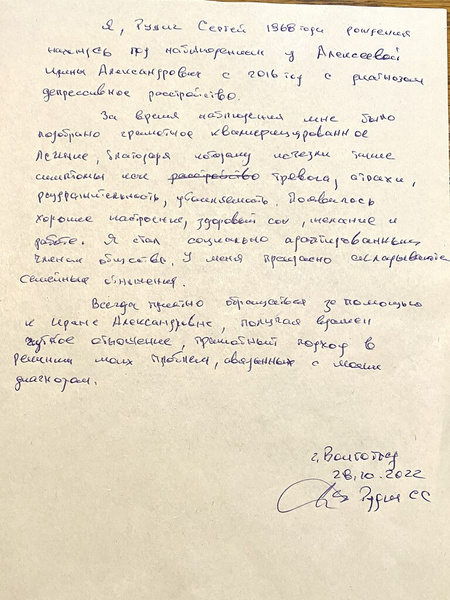 Я, Рудик Сергей 1968 года рождения
нахожусь под наблюдением у Алексеевой
Ирины Александровны с 2016 год с диагнозом
депрессивное расстройство.
За время наблюдения мне было
подобрано грамотное квалифицированное
лечение, благодаря которому исчезли такие
симптомы как расстройство тревога, страхи,
раздражительность, Появилось
хорошее настроение, здоровый сон, желание к
работе. Я стал социально адаптированным
членом общества. У меня прекрасно складываются
семейные отношения.
Всегда приятно обращаться за помощью
к Ирине Александровне, получая врачем
чуткое отношение, грамотный подход в
решении моих проблем, связанных с моим
диагнозом.
г. Волгоград
28.10.2022
СС